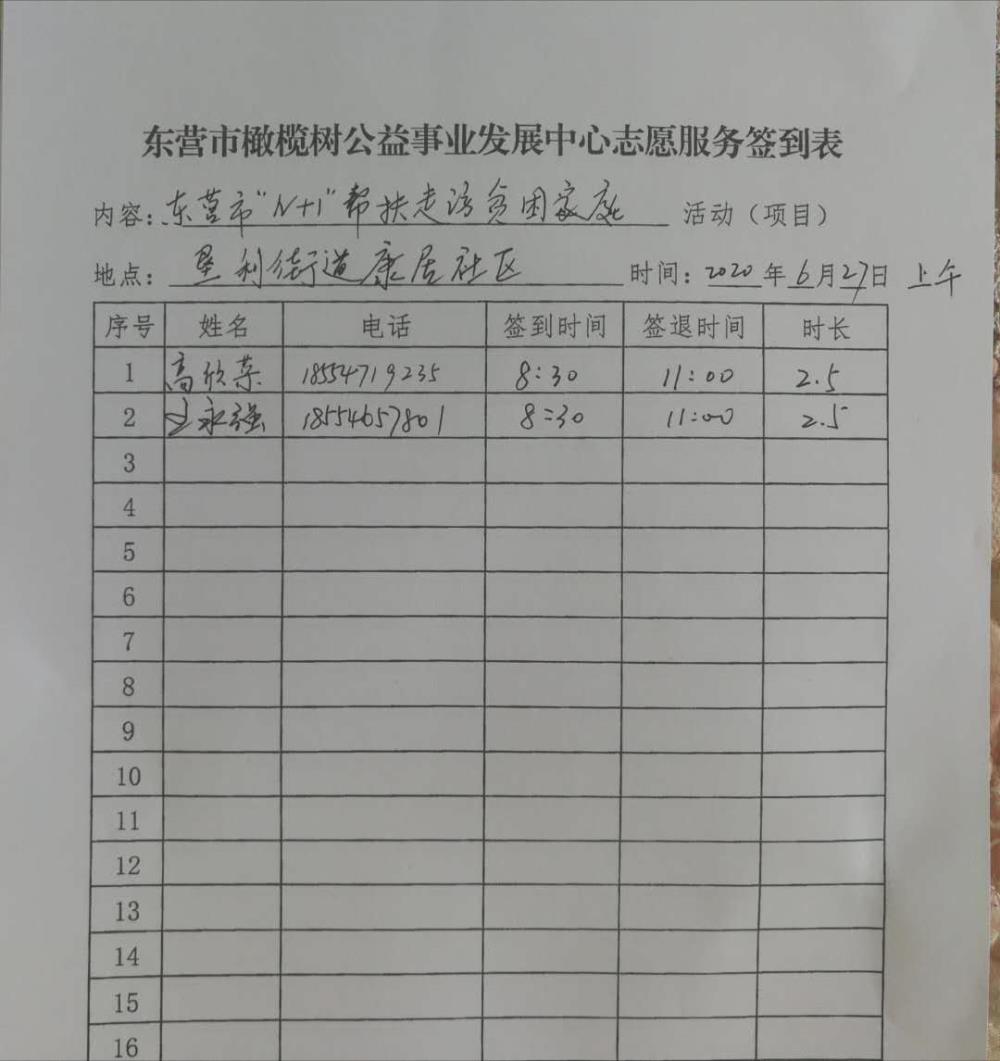 东营市橄榄树公益事业发展中心志愿服务签到表
内容：东营市“N+1”帮扶走访贫困家庭 活动（项目）
地点：垦利街道康居社区 时间：2020年6月27日 上午
序号 姓名 电话 签到时间 签退时间 时长
1 高欣荣 18554719235 8:30 11:00 2.5
2 王永强 18554657801 8:30 11:00 2.5
3
4
5
6
7
8
9
10
11
12
13
14
15
16